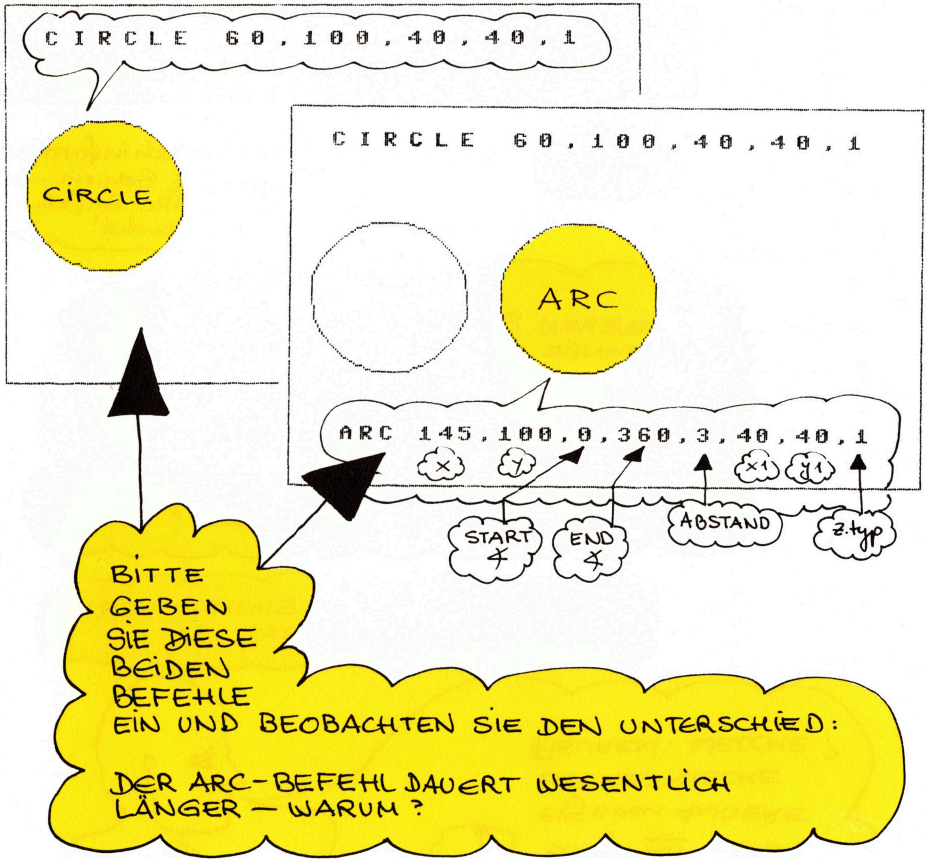 CIRCLE 60,100,40,40,1
CiRCLE
CIRCLE 60,100,40,40,1
ARC
ARC 145,100,0,360,3,40,40,1
x y x1 y1
START ∡
END ∡
ABSTAND
z.typ
BiTTE
GEBEN
SiE DiESE
BEiDEN
BEFEHLE
EiN UND BEOBACHTEN SiE DEN UNTERSCHiED:
DER ARC-BEFEHL DAUERT WESENTLiCH
LÄNGER — WARUM?